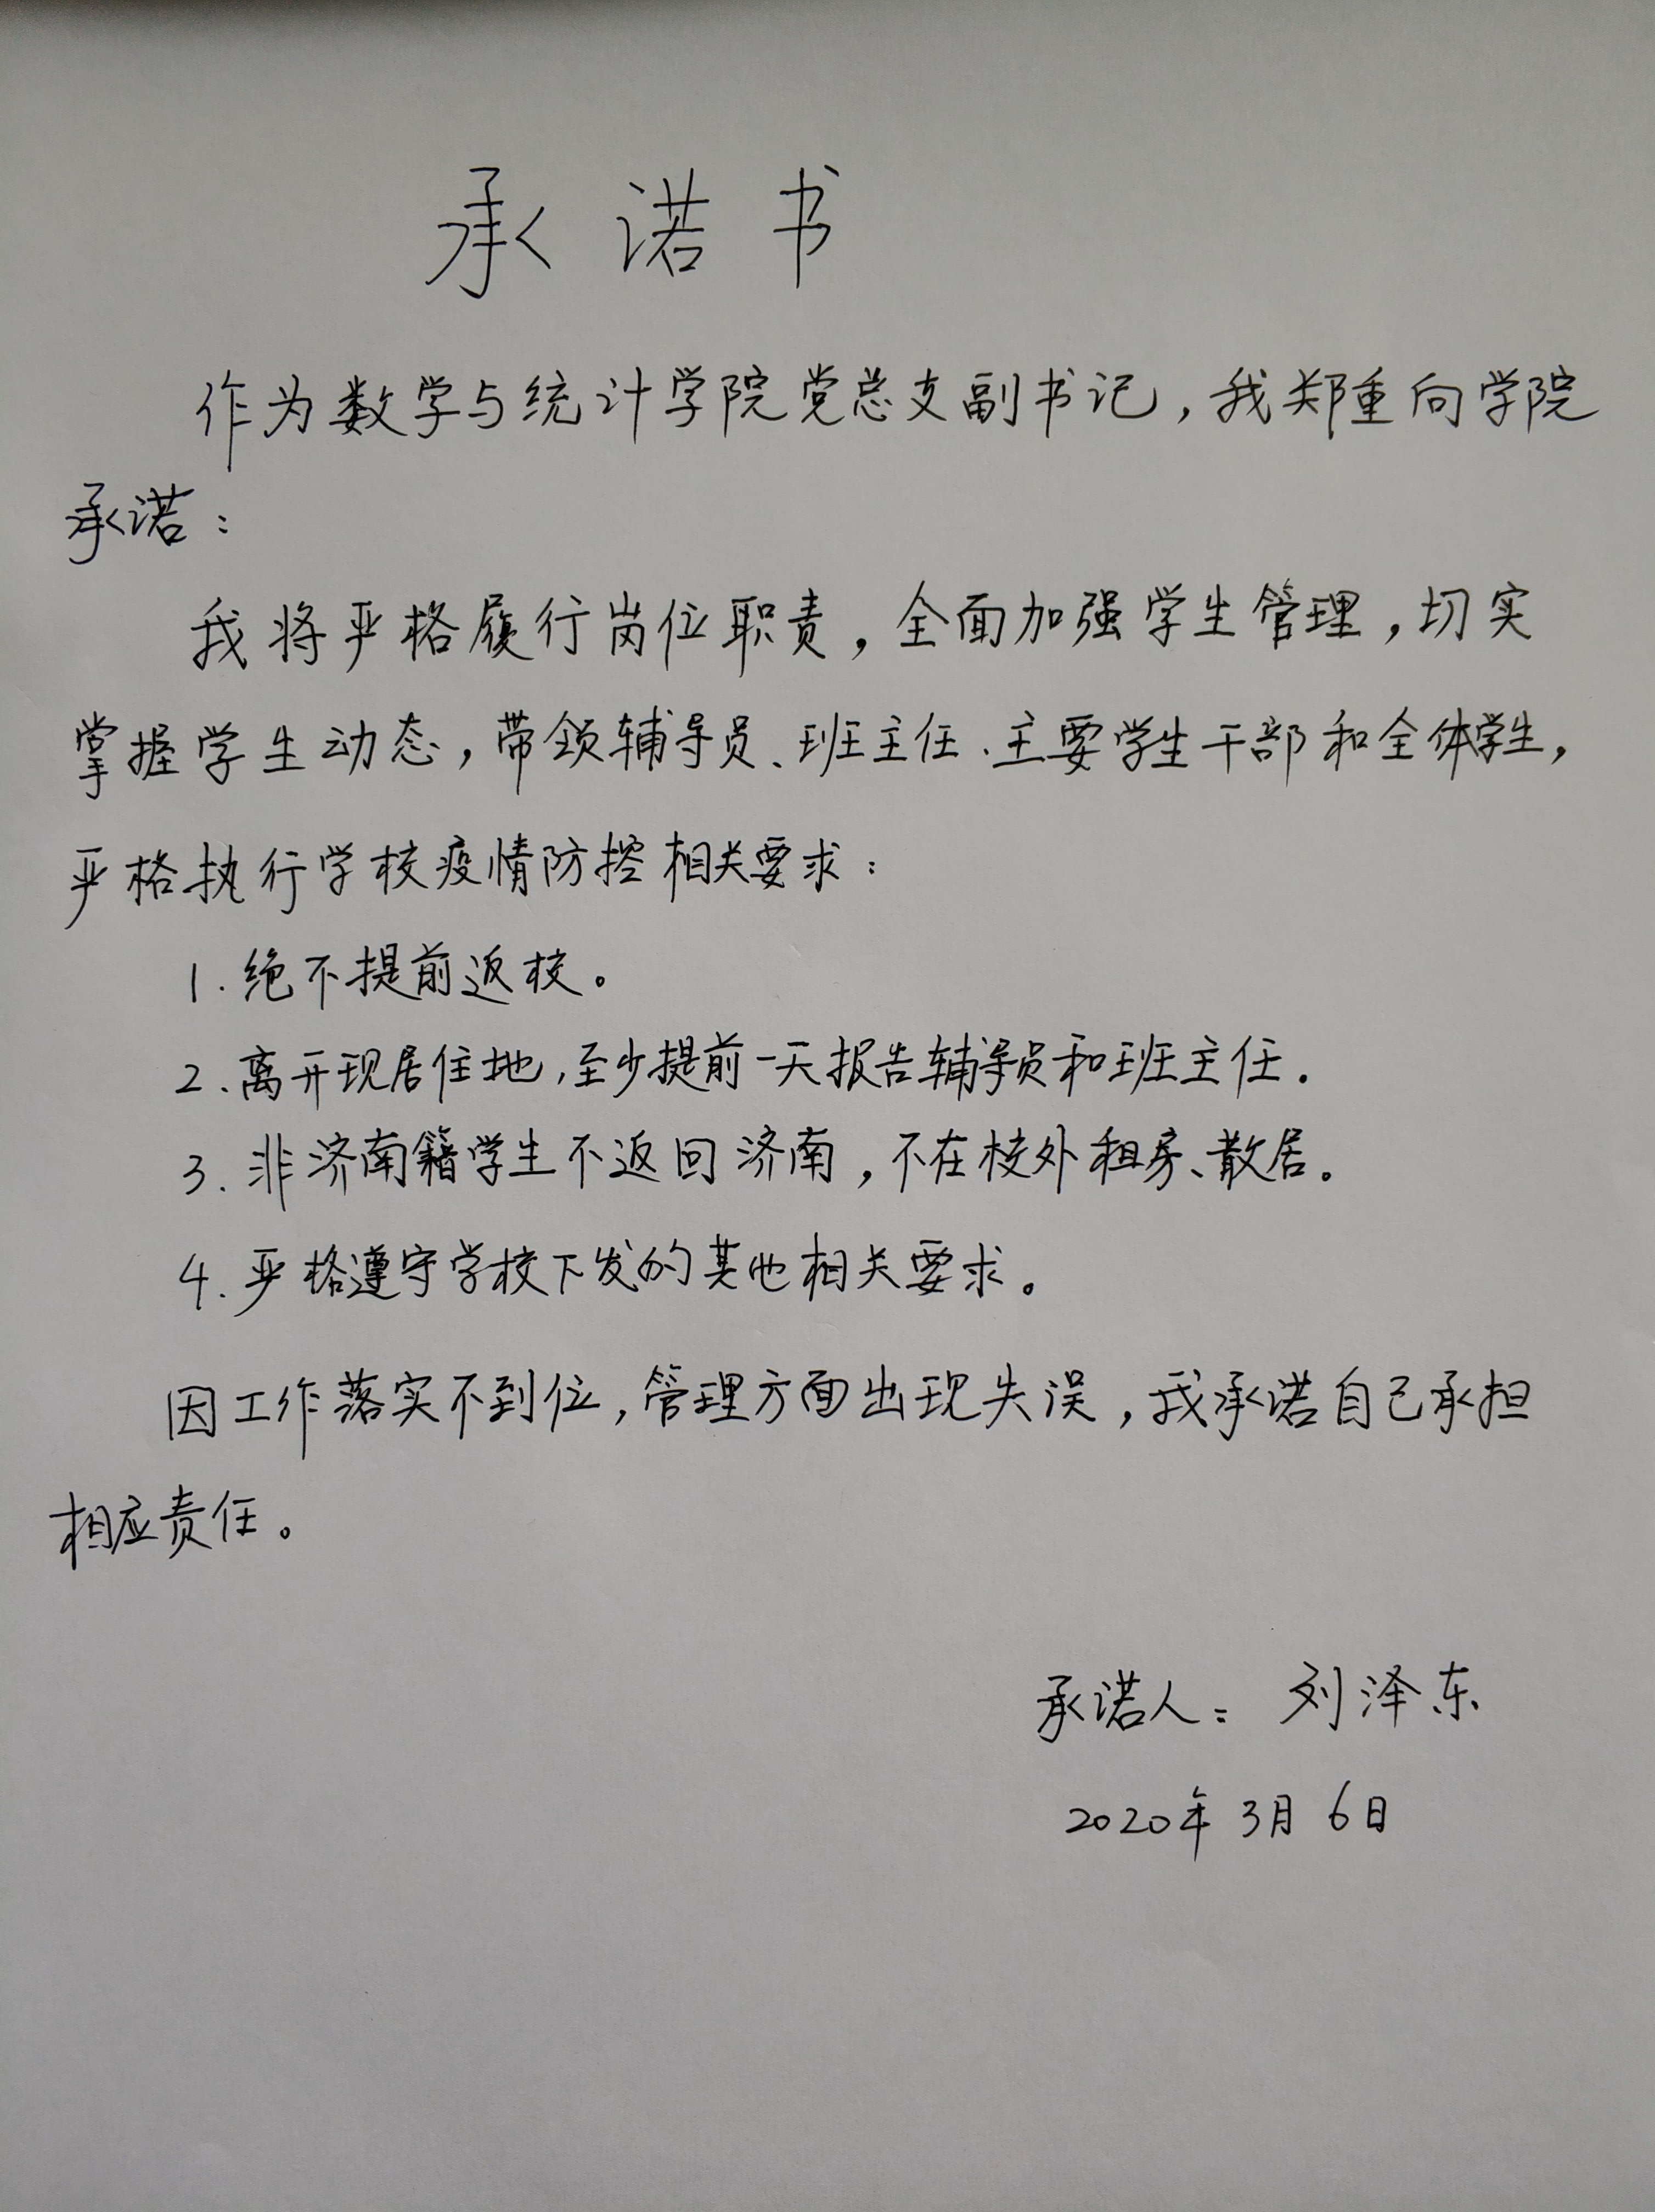 承诺书
作为数学与统计学院党总支副书记，我郑重向学院
承诺：
我将严格履行岗位职责，全面加强学生管理，切实
掌握学生动态，带领辅导员、班主任、主要学生干部和全体学生，
严格执行学校疫情防控相关要求：
1.绝不提前返校。
2、离开现居住地，至少提前一天报告辅导员和班主任.
3.非济南籍学生不返回济南，不在校外租房、散居。
4.严格遵守学校下发的其他相关要求。
因工作落实不到位，管理方面出现失误，我承诺自己承担
相应责任。
承诺人：刘泽东
2020年3月6日